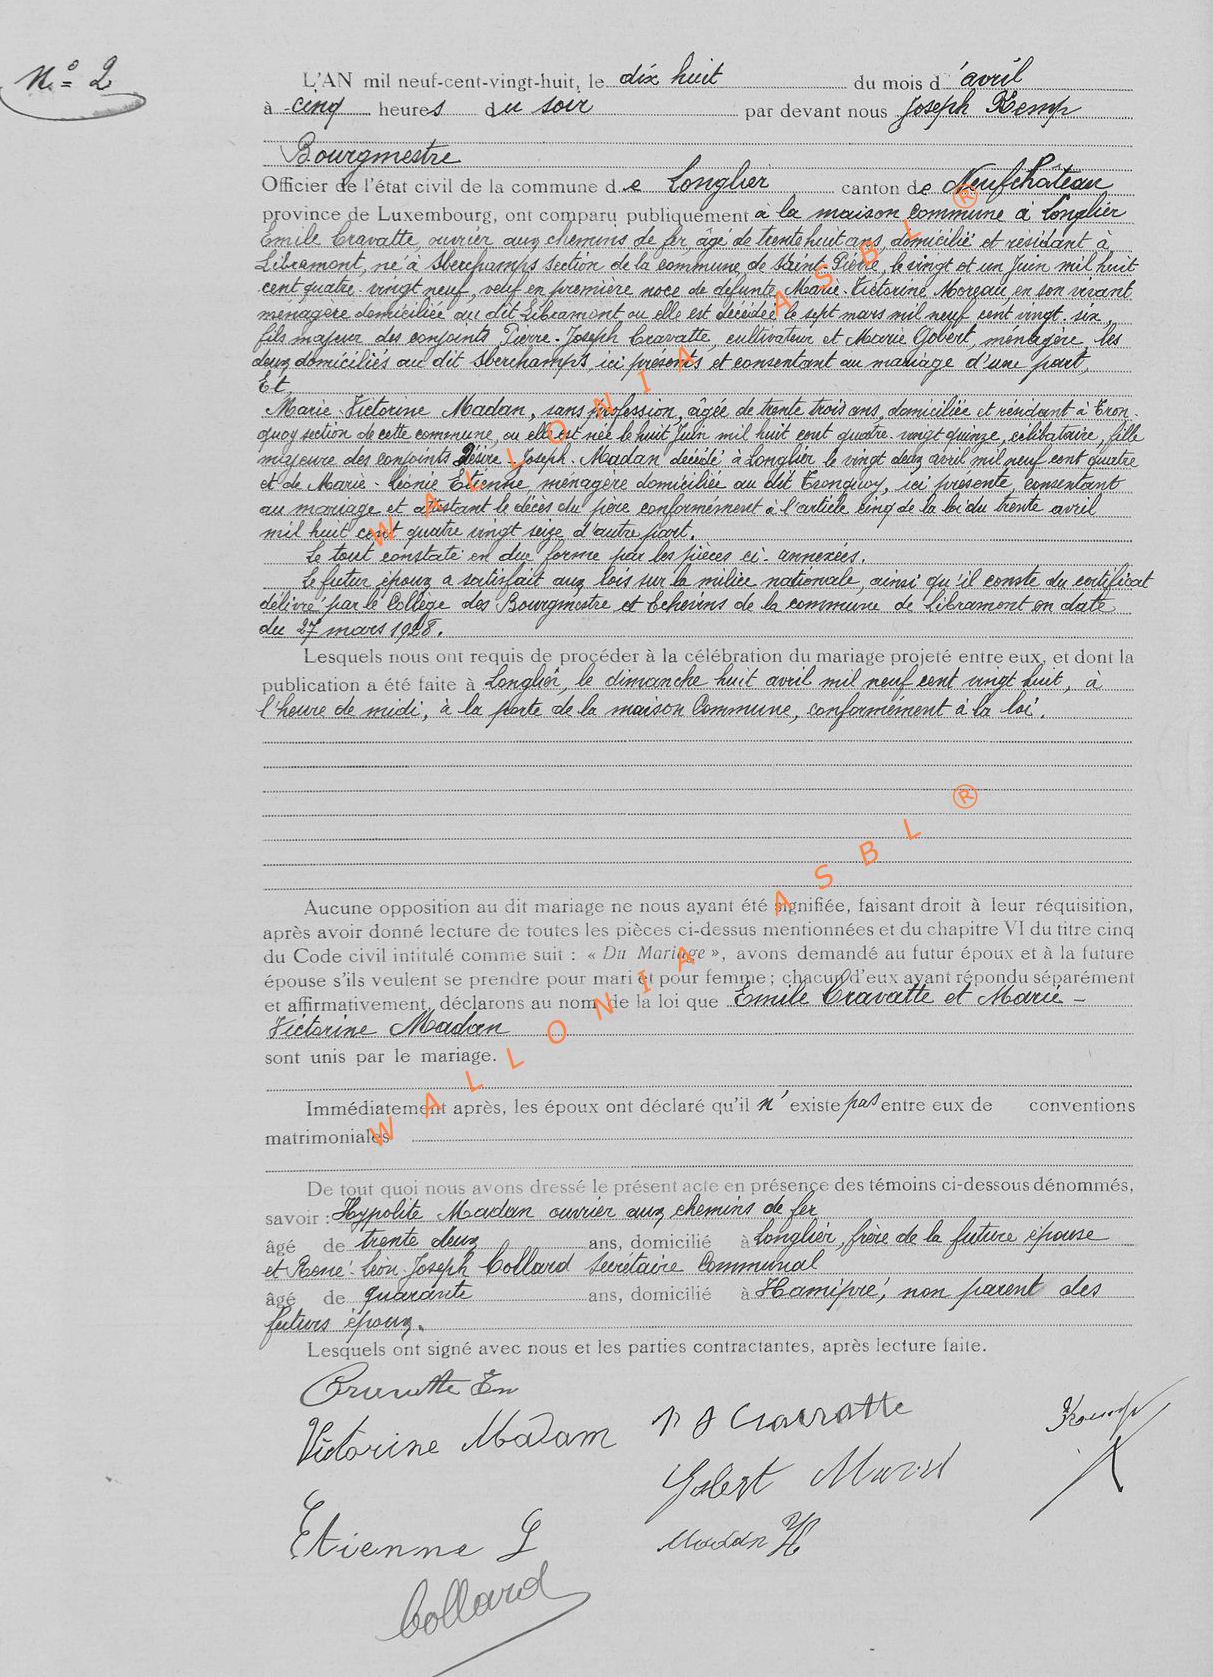 N° 2
L'AN mil neuf-cent-vingt-huit, le dix huit du mois d'avril
à cinq heures du soir par devant nous Joseph Kemp
Bourgmestre
Officier de l'état civil de la commune de Longlier canton de Neufchâteau
province de Luxembourg, ont comparu publiquement à la maison commune à Longlier
Emile Cravatte, ouvrier aux chemins de fer âgé de trente huit ans, domicilié et résidant à
Libramont, né à Sberchamps section de la commune de Saint Pierre, le vingt et un Juin mil huit
cent quatre-vingt neuf, veuf en première noce de défunte Marie-Victorine Moreau, en son vivant
ménagère domiciliée au dit Libramont ou elle est décédée le sept mars mil neuf cent vingt-six,
fils majeur des conjoints Pierre-Joseph Cravatte, cultivateur et Marie Gobert, ménagère, les
deux domiciliés au dit Sberchamps, ici présents et consentant au mariage d'une part,
Et
Marie-Victorine Madan, sans profession, âgée de trente trois ans, domiciliée et résidant à Tron-
quoy section de cette commune, ou elle est née le huit Juin mil huit cent quatre-vingt quinze, célibataire, fille
majeure des conjoints Désiré-Joseph-Madan décédé à Longlier le vingt deux avril mil neuf cent quatre
et de Marie-Léonie Etienne, ménagère domiciliée au dit Tronquoy, ici présente, consentant
au mariage et attestant le décès du père conformément à l'article cinq de la loi du trente avril
mil huit cent quatre vingt seize d'autre part.
Le tout constaté en due forme par les pièces ci-annexées.
Le futur époux a satisfait aux lois sur la milice nationale, ainsi qu'il conste du certificat
délivré par le Collège des Bourgmestre et Echevins de la commune de Libramont en date
du 27 mars 1928.
Lesquels nous ont requis de procéder à la célébration du mariage projeté entre eux, et dont la
publication a été faite à Longlier, le dimanche huit avril mil neuf cent vingt huit, à
l'heure de midi, à la porte de la maison Commune, conformément à la loi.
Aucune opposition au dit mariage ne nous ayant été signifiée, faisant droit à leur réquisition,
après avoir donné lecture de toutes les pièces ci-dessus mentionnées et du chapitre VI du titre cinq
du Code civil intitulé comme suit : « Du Mariage », avons demandé au futur époux et à la future
épouse s'ils veulent se prendre pour mari et pour femme ; chacun d'eux ayant répondu séparément
et affirmativement, déclarons au nom de la loi que Emile Cravatte et Marie-
Victorine Madan
sont unis par le mariage.
Immédiatement après, les époux ont déclaré qu'il n'existe pas entre eux de conventions
matrimoniales
De tout quoi nous avons dressé le présent acte en présence des témoins ci-dessous dénommés,
savoir : Hyppolite Madan ouvrier aux chemins de fer
âgé de trente deux ans, domicilié à Longlier, frère de la future épouse
et René-Léon-Joseph Collard Secrétaire Communal
âgé de quarante ans, domicilié à Hamipré, non parent des
futurs époux.
Lesquels ont signé avec nous et les parties contractantes, après lecture faite.
Cravatte Em
Victorine Madam P J Cravatte Kemp
Gobert Marie
Etienne L Madan H
Collard
WALLONIA ASBL ®
WALLONIA ASBL ®